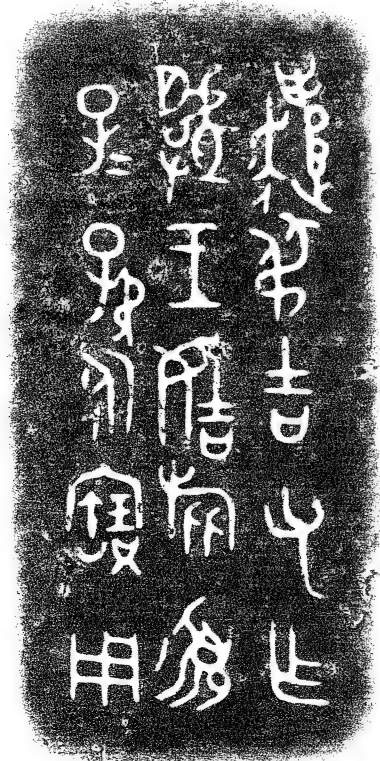 遣叔吉父乍
虢王姞旅須
子〻孫永寶用